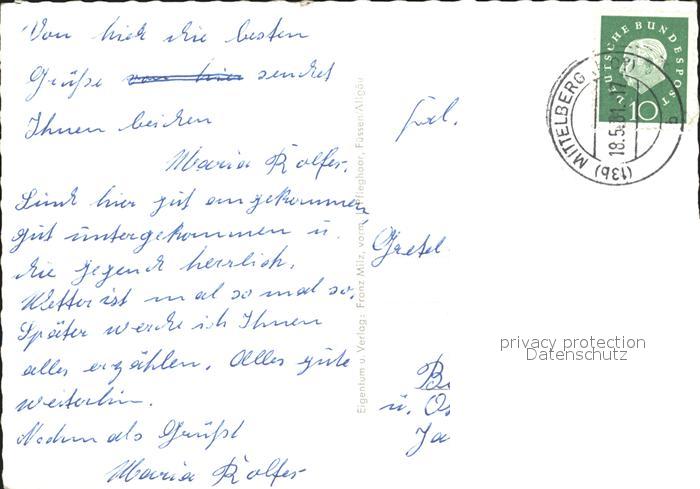 Von hier die besten
Grüße von hier sendet
Ihnen beiden
Maria Rolfes.
Sind hier gut angekommen
gut untergekommen u.
die Gegend herrlich.
Wetter ist mal so mal so.
Später werde ich Ihnen
alles erzählen. Alles gute
weiterhin.
Nochmals Grüßt
Maria Rolfes
Eigentum u. Verlag: Franz Milz, vorm. Pflieghoar, Füssen-Allgäu
DEUTSCHE BUNDESPOST
10
(13b) MITTELBERG
18.5.61.17
b
Frl.
Gretel
privacy protection
Datenschutz
u.